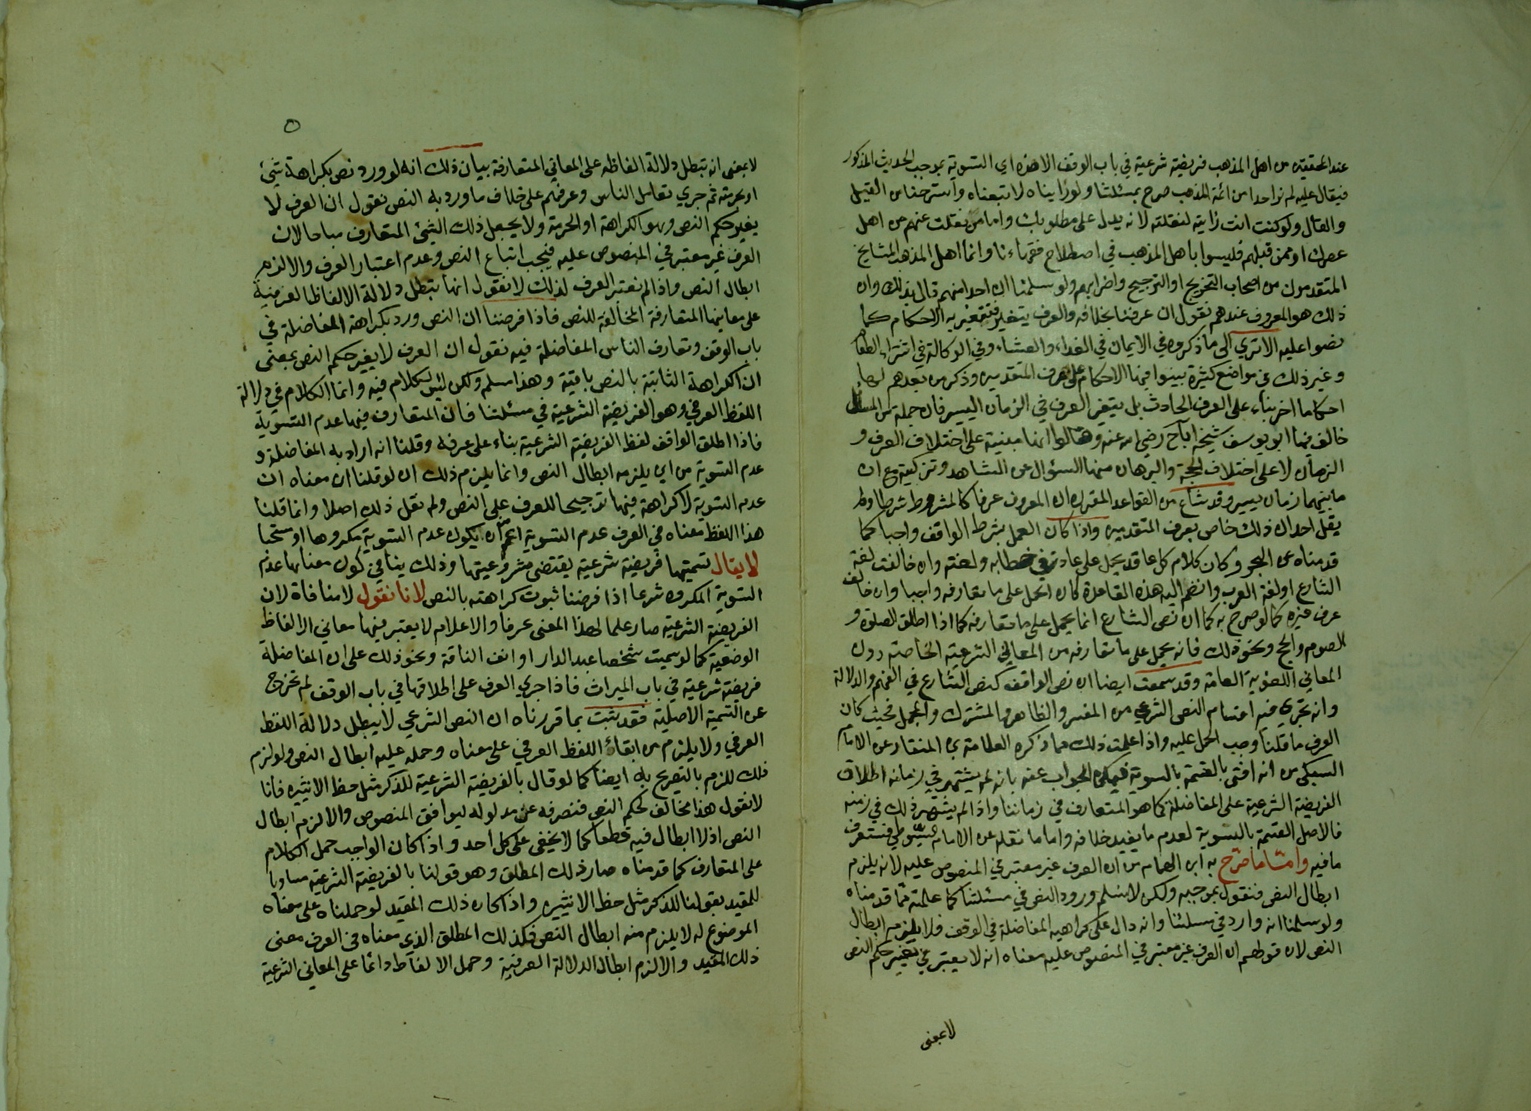 عند المحققين من اهل المذهب فريضة شرعية في باب الوقف الا هذه اي التسوية بموجب الحديث المذكور
فيقال عليه لم نر احدا من ائمة المذهب صرح بمسئلتنا ولو رايناه لاتبعناه واسترحنا من القيل
والقال ولو كنت انت رايته لنقلته لانه يدل على مطلوبك واما من نقلت عنهم من اهل
عصرك او ممن قبلهم فليسوا باهل المذهب في اصطلاح فقهاءنا وانما اهل المذهب المشايخ
المتقدمون من اصحاب التخريج او الترجيح واضرابهم ولو سلمنا ان احدا منهم قال بذلك وان
ذلك هو المعروف عندهم نقول ان عرفنا بخلافه والعرف يتغير فتتغير به الاحكام كما
نصوا عليه الا ترى الى ما ذكروه في الايمان في الغداء والعشاء وفي الوكالة في اشتراء الطعام
وغير ذلك في مواضع كثيرة بينوا فيها الاحكام على عرف المتقدمين وذكر من بعدهم لها
احكاما اخر بناء على العرف الحادث بل يتغير العرف في الزمان اليسير فان جملة من المسائل
خالف فيها ابو يوسف شيخه ابا ح رضي الله عنه وقالوا انها مبنية على اختلاف العرف و
الزمان لا على اختلاف الحجة والبرهان منها السؤال عن الشاهد وتزكيته مع ان
ما بينهما زمان يسير وقد شاع من القواعد المقررة ان المعروف عرفا كالمشروط شرطا ولم
يقل احد ان ذلك خاص بعرف المتقدمين واذا كان العمل بشرط الواقف واجبا كما
قدمناه عن البحر وكان كلام كل عاقد يحمل على عادته في خطابه ولغته وان خالفت لغة
الشارع او لغة العرب وانضم اليه هذه القاعدة كان الحمل على ما تعارفه واجبا وان خالف
عرف غيره كما لو صرح به كما ان نص الشارع انما يحمل على ما تعارفه كما اذا اطلق الصلوة و
الصوم والحج ونحو ذلك فانه يحمل على ما تعارفه من المعاني الشرعية الخاصة دون
المعاني اللغوية العامة وقد سمعت ايضا ان نص الواقف كنص الشارع في الفهم والدلالة
وانه تجري فيه اقسام النص الشرعي من المفسر والظاهر والمشترك والمجمل فحيث كان
العرف ما قلنا وجب الحمل عليه واذا علمت ذلك مما ذكره العلامة ى المنقار عن الامام
السبكي من انه افتى بالقسمة بالسوية فيمكن الجواب عنه بانه لم يشتهر في زمانه اطلاق
الفريضة الشرعية على المفاضلة كما هو المتعارف في زماننا واذا لم يشتهر ذلك في زمنه
فالاصل القسمة بالسوية لعدم ما يفيد خلافه واما ما نقله عن الامام السيوطي فستعرف
ما فيه واما ما صرح به ابن الهمام من ان العرف غير معتبر في المنصوص عليه لانه يلزم
ابطال النص فنقول بموجبه ولكن لا نسلم ورود النص في مسئلتنا كما علمته مما قدمناه
ولو سلمنا انه وارد في مسئلتنا وانه دال على كراهية المفاضلة في الوقف فلا يلزم ابطال
النص لان قولهم ان العرف غير معتبر في المنصوص عليه معناه انه لا يعتبر في تغيير حكم النص
لا بمعنى
٥
لا بمعنى انه تبطل دلالة الفاظه على المعاني المتعارفة بيان ذلك انه لو ورد نص بكراهة شيئ
او بحرمته ثم جرى تعامل الناس وعرفهم على خلاف ما ورد به النص نقول ان العرف لا
يغير حكم النص وهو الكراهة او الحرمة ولا يجعل ذلك الشيئ المتعارف مباحا لان
العرف غير معتبر في المنصوص عليه فيجب اتباع النص وعدم اعتبار العرف والا لزم
ابطال النص واذا لم نعتبر العرف لذلك لا نقول انها تبطل دلالة الالفاظ العرفية
على معانيها المتعارفة المخالفة للنص فاذا فرضنا ان النص ورد بكراهة المفاضلة في
باب الوقف وتعارف الناس المفاضلة فيه نقول ان العرف لا يغير حكم النص بمعنى
ان الكراهة الثابتة بالنص باقية وهذا مسلم ولكن ليس الكلام فيه وانما الكلام في دلالة
اللفظ العرفي وهو الفريضة الشرعية في مسئلتنا فان المتعارف فيها عدم التسوية
فاذا اطلق الواقف لفظ الفريضة الشرعية بناء على عرفه وقلنا انه اراد به المفاضلة و
عدم التسوية من اين يلزم ابطال النص وانما يلزم ذلك ان لو قلنا ان معناه ان
عدم التسوية لا كراهة فيها ترجيحا للعرف على النص ولم نقل ذلك اصلا وانما قلنا
هذا اللفظ معناه في العرف عدم التسوية اعم ان يكون عدم التسوية مكروها او مستحبا
لا يقال تسميتها فريضة شرعية يقتضي مشروعيتها وذلك ينافي كون معناها عدم
التسوية المكروه شرعا اذا فرضنا ثبوت كراهته بالنص لانا نقول لا منافاة لان
الفريضة الشرعية صار علما لهذا المعنى عرفا والاعلام لا يعتبر فيها معاني الالفاظ
الوضعية كما لو سميت شخصا عبد الدار او انف الناقة ونحو ذلك على ان المفاضلة
فريضة شرعية في باب الميراث فاذا جرى العرف على اطلاقها في باب الوقف لم تخرج
عن التسمية الاصلية فقد ثبت بما قررناه ان النص الشرعي لا يبطل دلالة اللفظ
العرفي ولا يلزم من ابقاء اللفظ العرفي على معناه وحمله عليه ابطال النص ولو لزم
ذلك للزم بالتصريح به ايضا كما لو قال بالفريضة الشرعية للذكر مثل حظ الانثيين فانا
لا نقول هذا مخالف لحكم النص فنصرفه عن مدلوله ليوافق المنصوص والا لزم ابطال
النص اذ لا ابطال فيه قطعا كما لا يخفى على كل احد واذا كان الواجب حمل الكلام
على المتعارف كما قدمناه صار ذلك المطلق وهو قولنا بالفريضة الشرعية مساويا
للمقيد بقولنا للذكر مثل حظ الانثيين واذا كان ذلك المقيد لو حملناه على معناه
الموضوع له لا يلزم منه ابطال النص فكذلك المطلق الذي معناه في العرف معنى
ذلك المقيد والا لزم ابطال الدلالة العرفية وحمل الالفاظ دائما على المعاني الشرعية